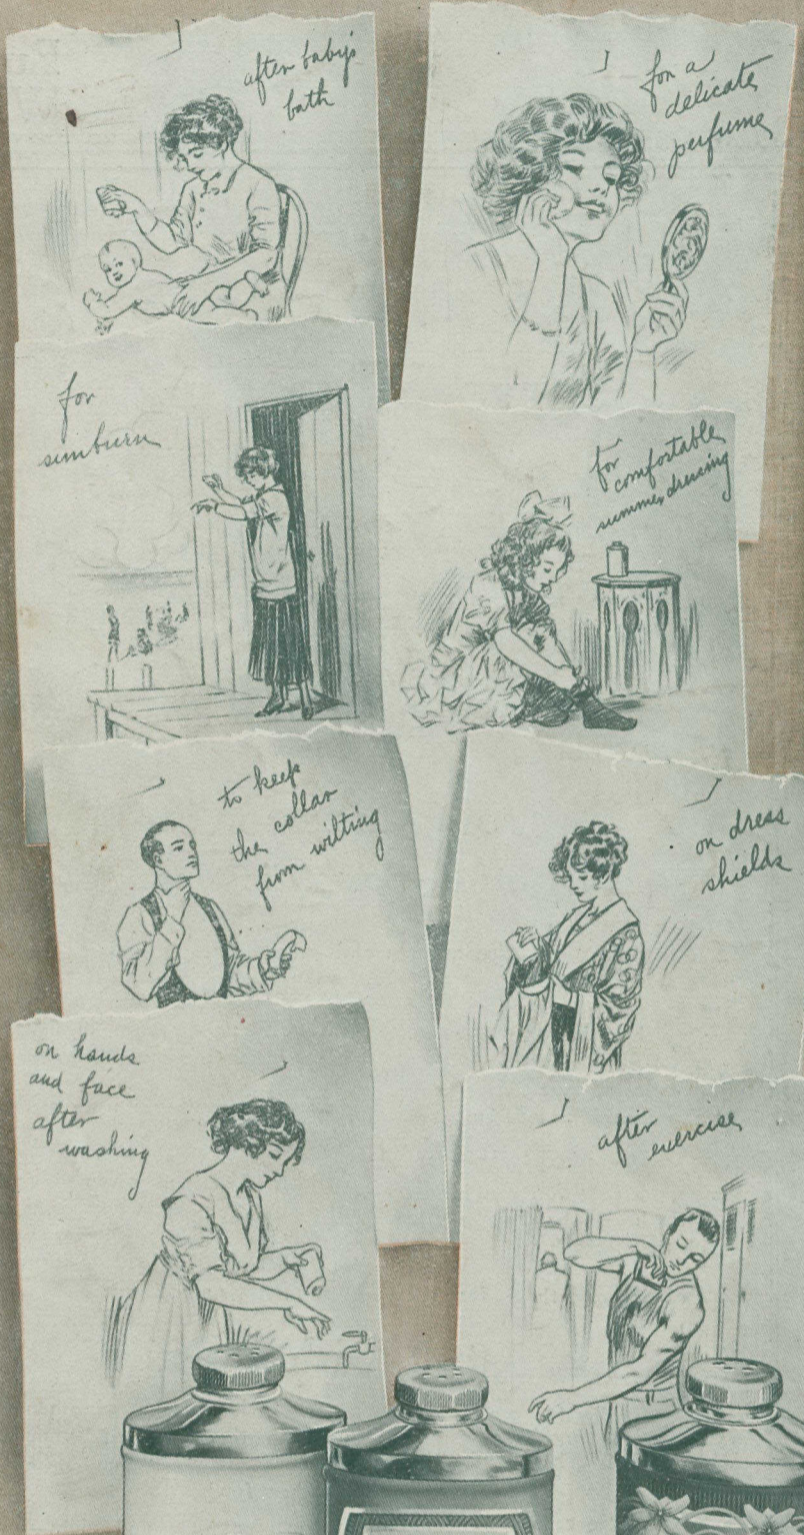 after baby's
bath
for a
delicate
perfume
for
sunburn
for
comfortable
summer dressing
to keep
the collar
from wilting
on dress
shields
on hands
and face
after
washing
after
exercise